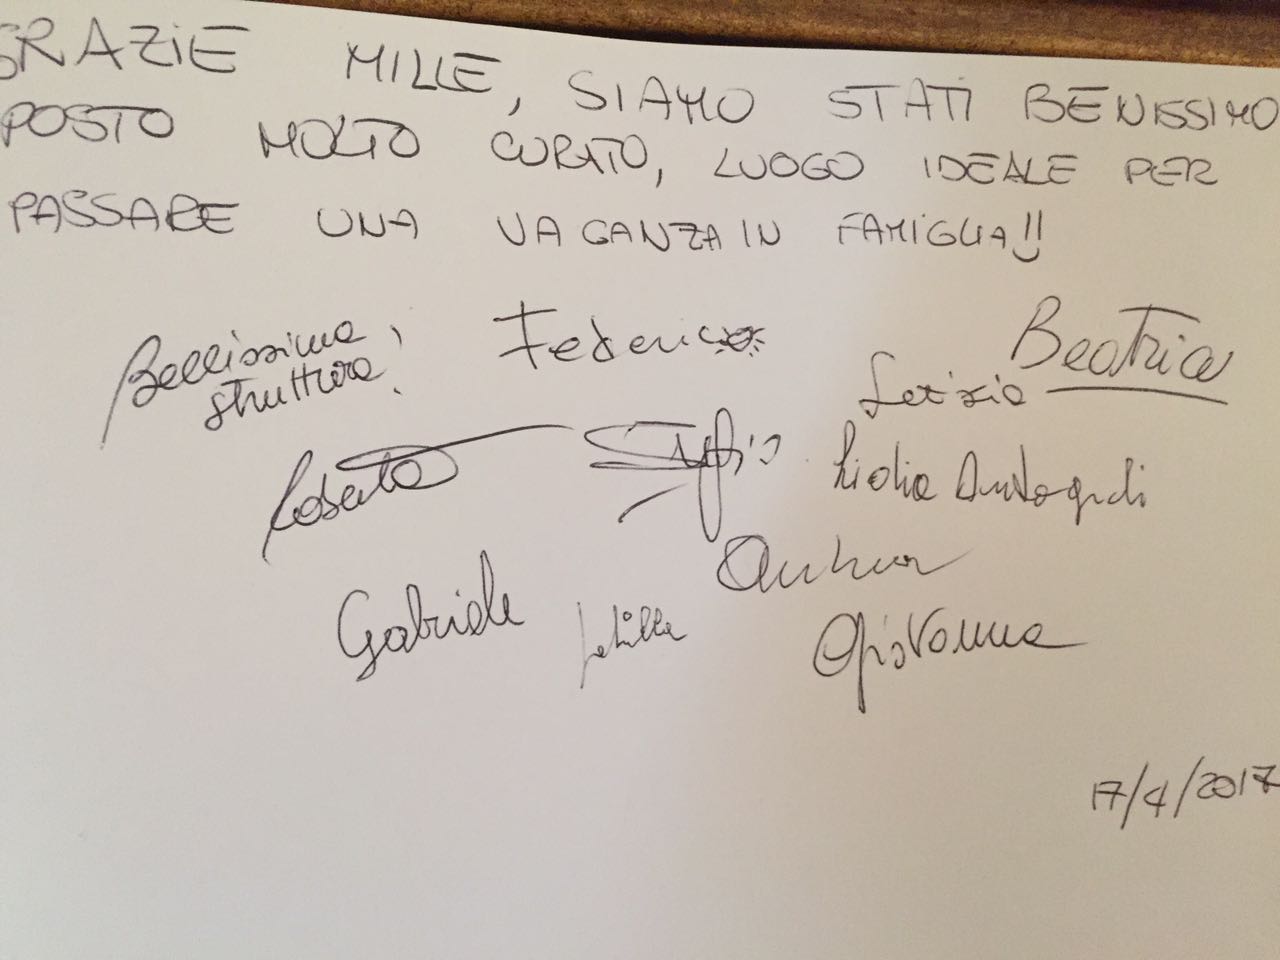 GRAZIE MILLE, SIAMO STATI BENISSIMO
POSTO MOLTO CURATO, LUOGO IDEALE PER
PASSARE UNA VAGANZA IN FAMIGLIA!!
Bellissima
struttura!
Federico
Beatrice
Letizia
Roberta
Lidia
Gabriele
Giovanna
17/4/2017